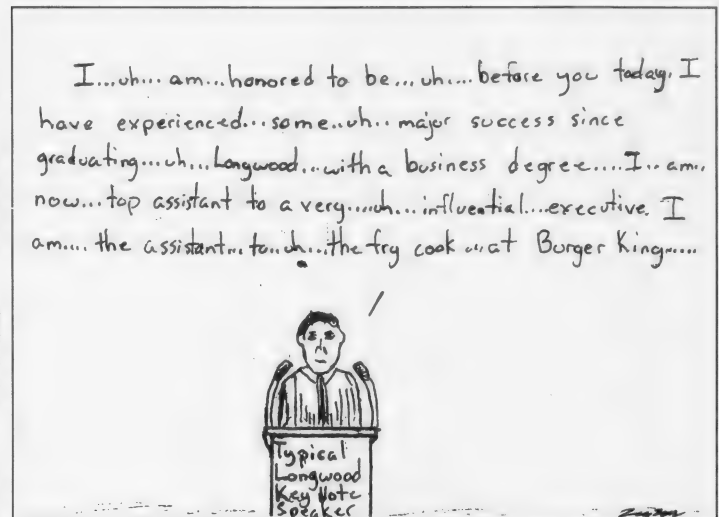 I...uh... am...honored to be...uh....before you today. I
have experienced...some..uh.. major success since
graduating...uh...Longwood...with a business degree.....I..am..
now...top assistant to a very....uh...influential....executive. I
am.... the assistant...to..uh...the fry cook ...at Burger King.....
Typical
Longwood
Key Note
Speaker